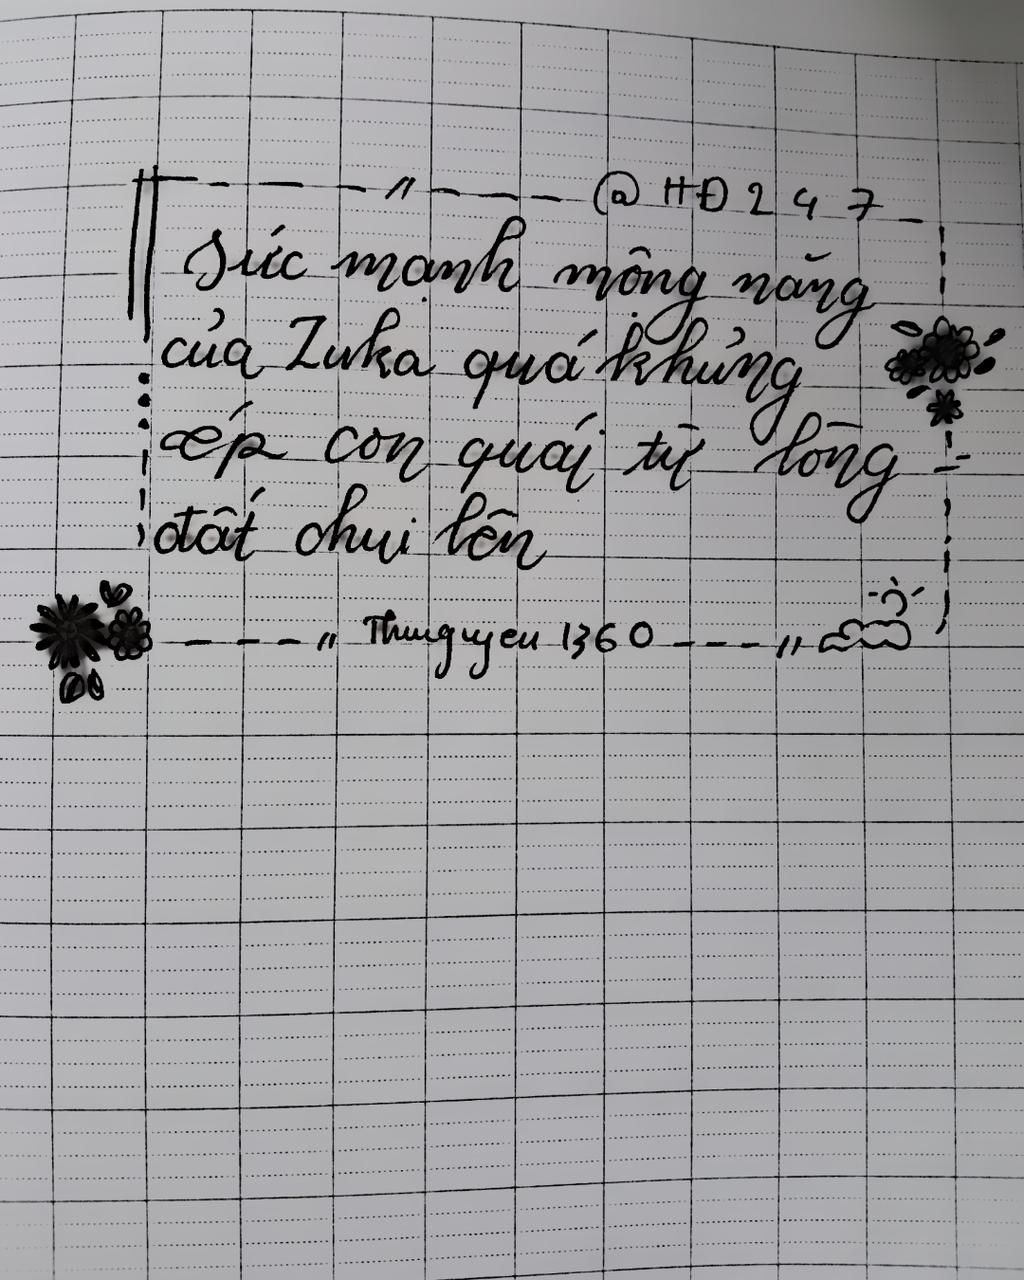 @HĐ247
Sức mạnh mông nặng
của Zuka quá khủng
ép con quái từ lòng
đất chui lên
Thuuguyeu 1360